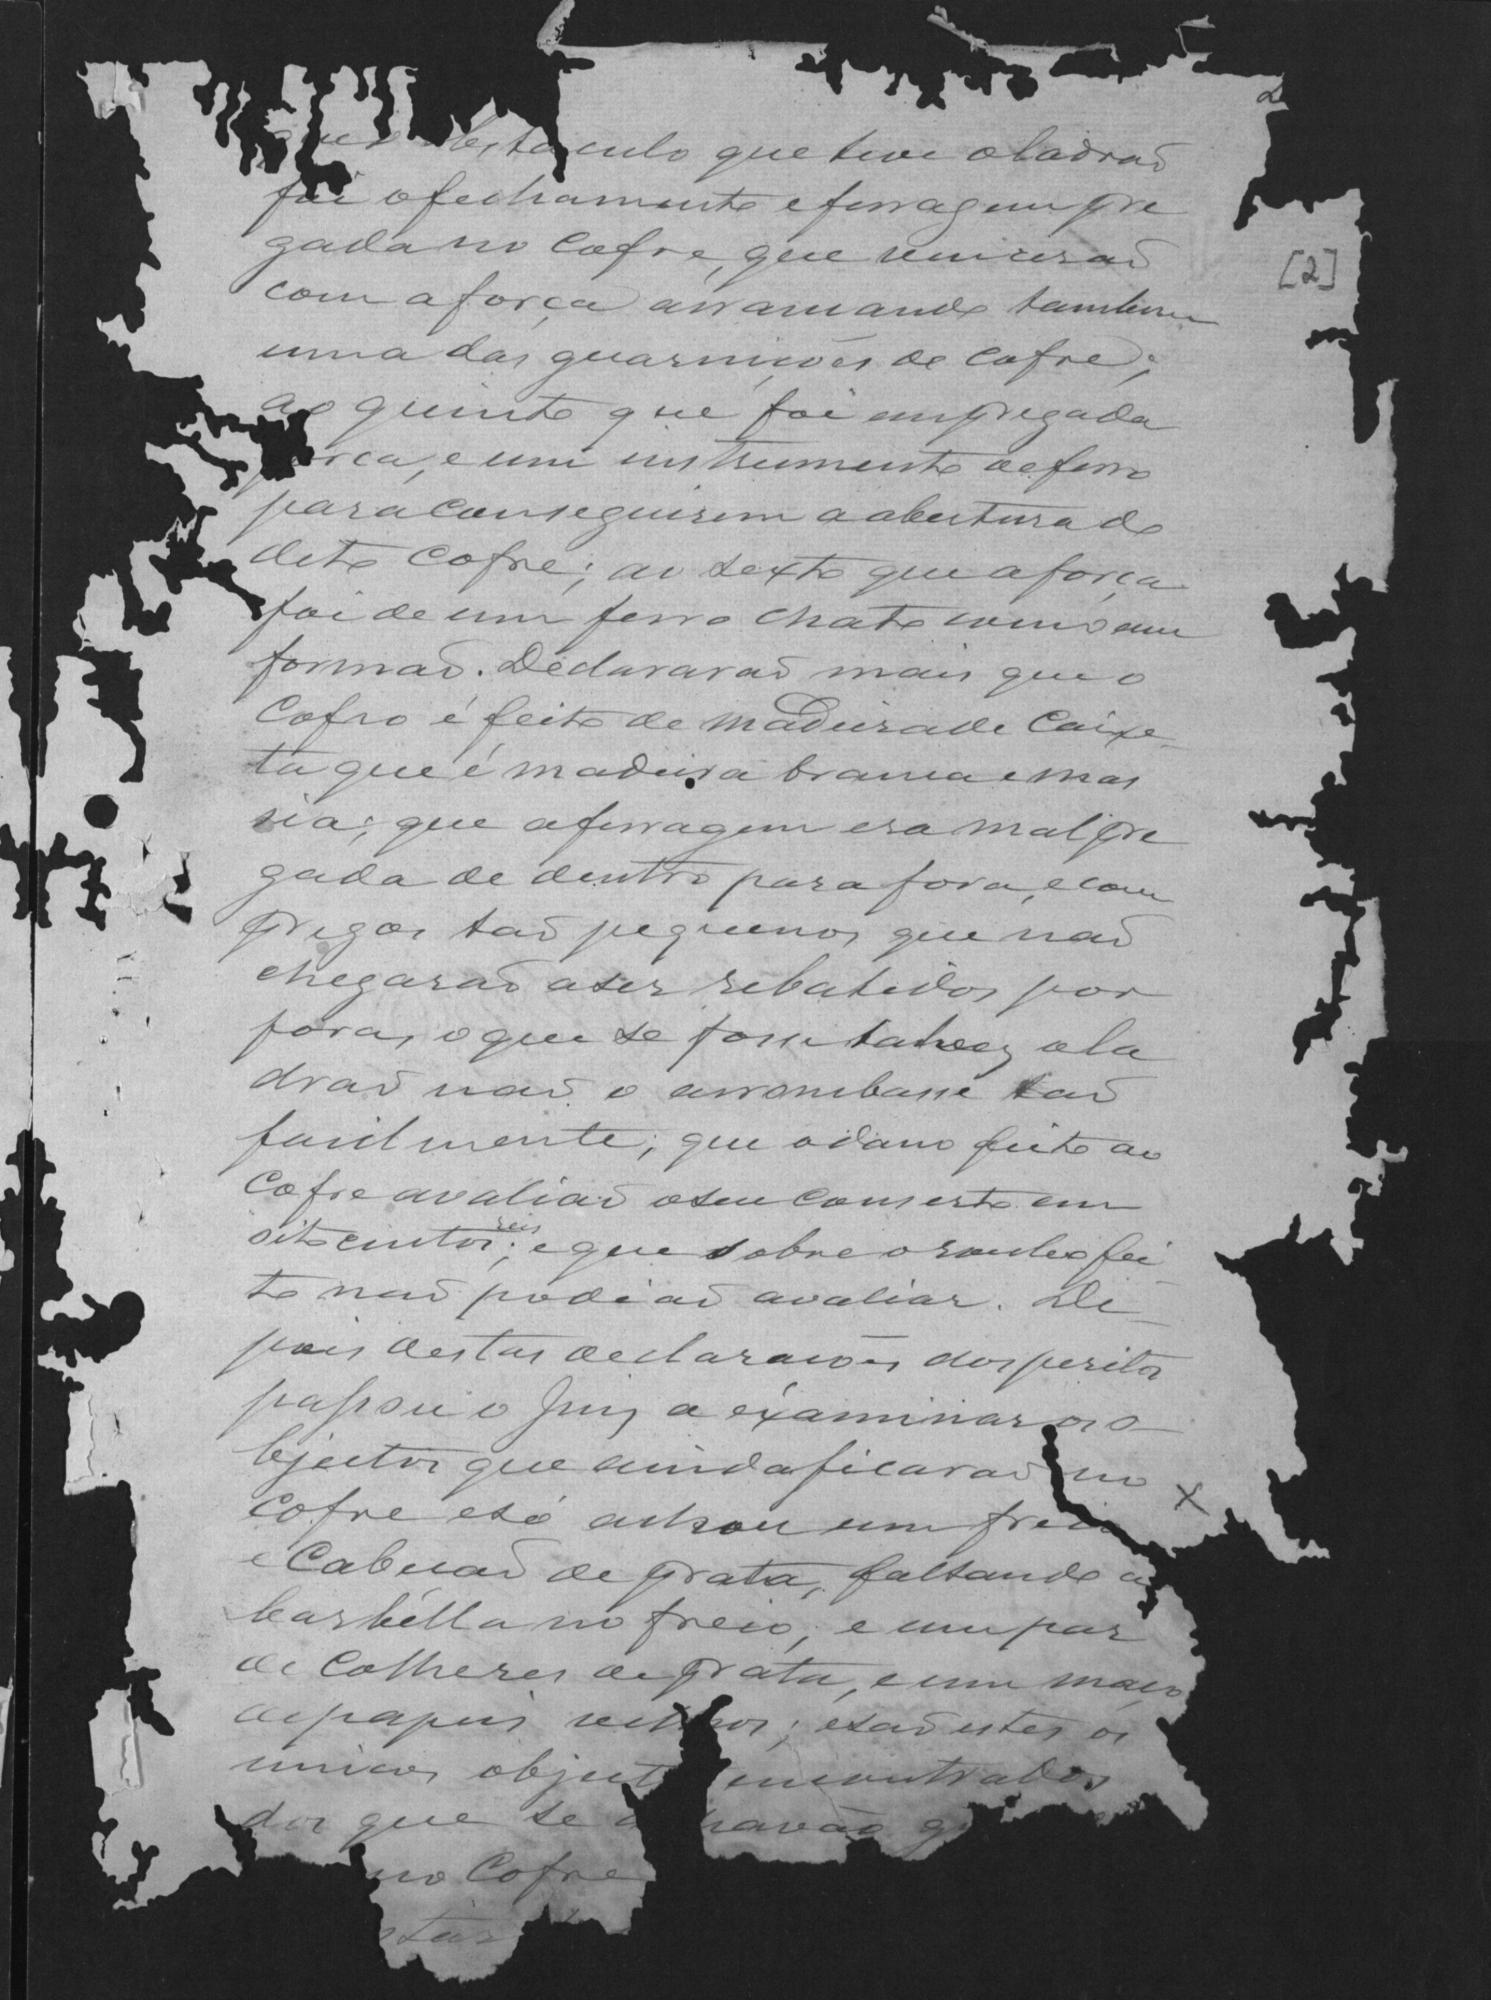 2
que obstaculo que teve o ladraõ
foi o fechamento e ferragem pre
gada no Cofre, que venceraõ
com a força arrancando tambem
uma das guarnicões do Cofre;
ao quinto que foi empregada
força, e um instrumento de ferro
para conseguirem a abertura do
dito Cofre; ao sexto que a força
foi de um ferro chato como um
formaõ. Declararaõ mais que o
Cofro é feito de madeira de Caixe-
ta que é madeira branca e mas
sia; que a ferragem era mal pre
gada de dentro para fora, e com
pregos taõ pequenos que naõ
chegaraõ a ser rebatidos por
fora, o que se fosse talvez o la
draõ naõ o arrombasse taõ
facilmente; que o dano feito ao
Cofre avaliaõ o seu conserto em
oitocentos reis; e que sobre o roubo fei
to naõ podiaõ avaliar. De-
pois destas declaracões dos peritos
passou o Juiz a examinar os o-
bjectos que ainda ficaraõ no
Cofre e só achou um freio
e Cabeçaõ de prata, faltando a
barbélla no freio; e um par
de Colheres de prata, e um maço
de papeis velhos; e saõ estes os
unicos objectos encontrados
dos que se achavão g
no Cofre
[2]
X